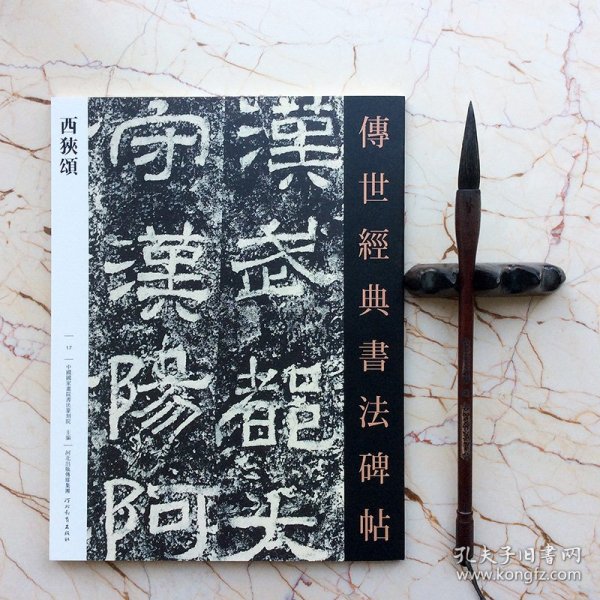 傳世經典書法碑帖
漢武都太
守漢陽阿
西狹頌
中國國家畫院書法篆刻院 主編
河北出版傳媒集團
河北教育出版社
孔夫子旧书网
www.kongfz.com